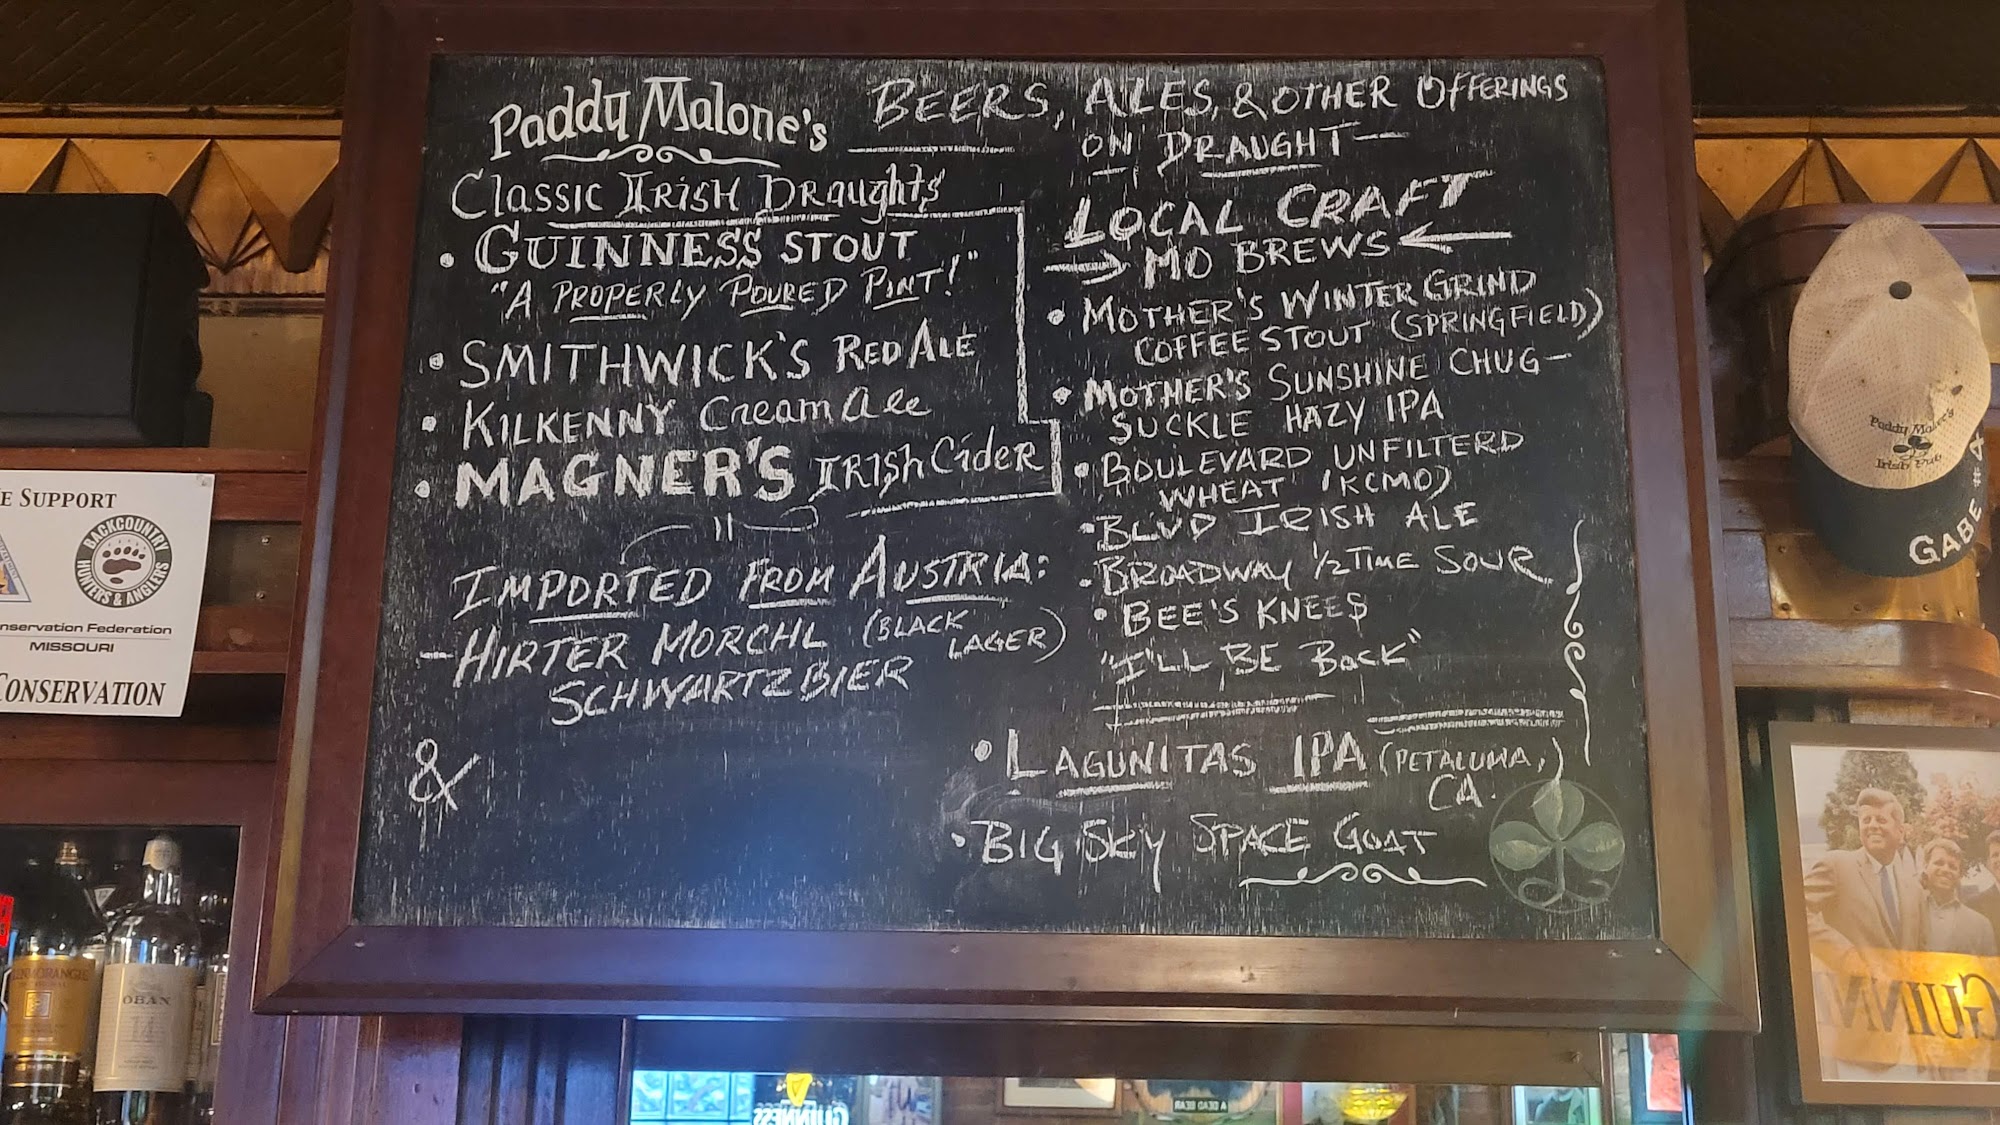 Paddy Malone's
BEERS, ALES, & OTHER OFFERINGS
ON DRAUGHT—
Classic IRISH Draughts
• GUINNESS STOUT
"A PROPERLY POURED PINT!"
• SMITHWICK'S RED ALE
• KILKENNY Cream Ale
• MAGNER'S IRISH Cider
IMPORTED FROM AUSTRIA:
- HIRTER MORCHL (BLACK
LAGER)
SCHWARTZBIER
&
LOCAL CRAFT
→ MO BREWS ←
• MOTHER'S WINTER GRIND
COFFEE STOUT (SPRINGFIELD)
• MOTHER'S SUNSHINE CHUG-
SUCKLE HAZY IPA
• BOULEVARD UNFILTERD
WHEAT (KCMO)
• BLVD IRISH ALE
• BROADWAY 1/2 TIME SOUR
• BEE'S KNEES
"I'LL BE BACK"
• LAGUNITAS IPA (PETALUMA,)
CA.
• BIG SKY SPACE GOAT
E SUPPORT
BACKCOUNTRY
HUNTERS & ANGLERS
nservation Federation
MISSOURI
CONSERVATION
OBAN
14
Paddy Malone's
Irish Pub
GABE #4
GUINN
GUINNESS
A DEAD BEAR